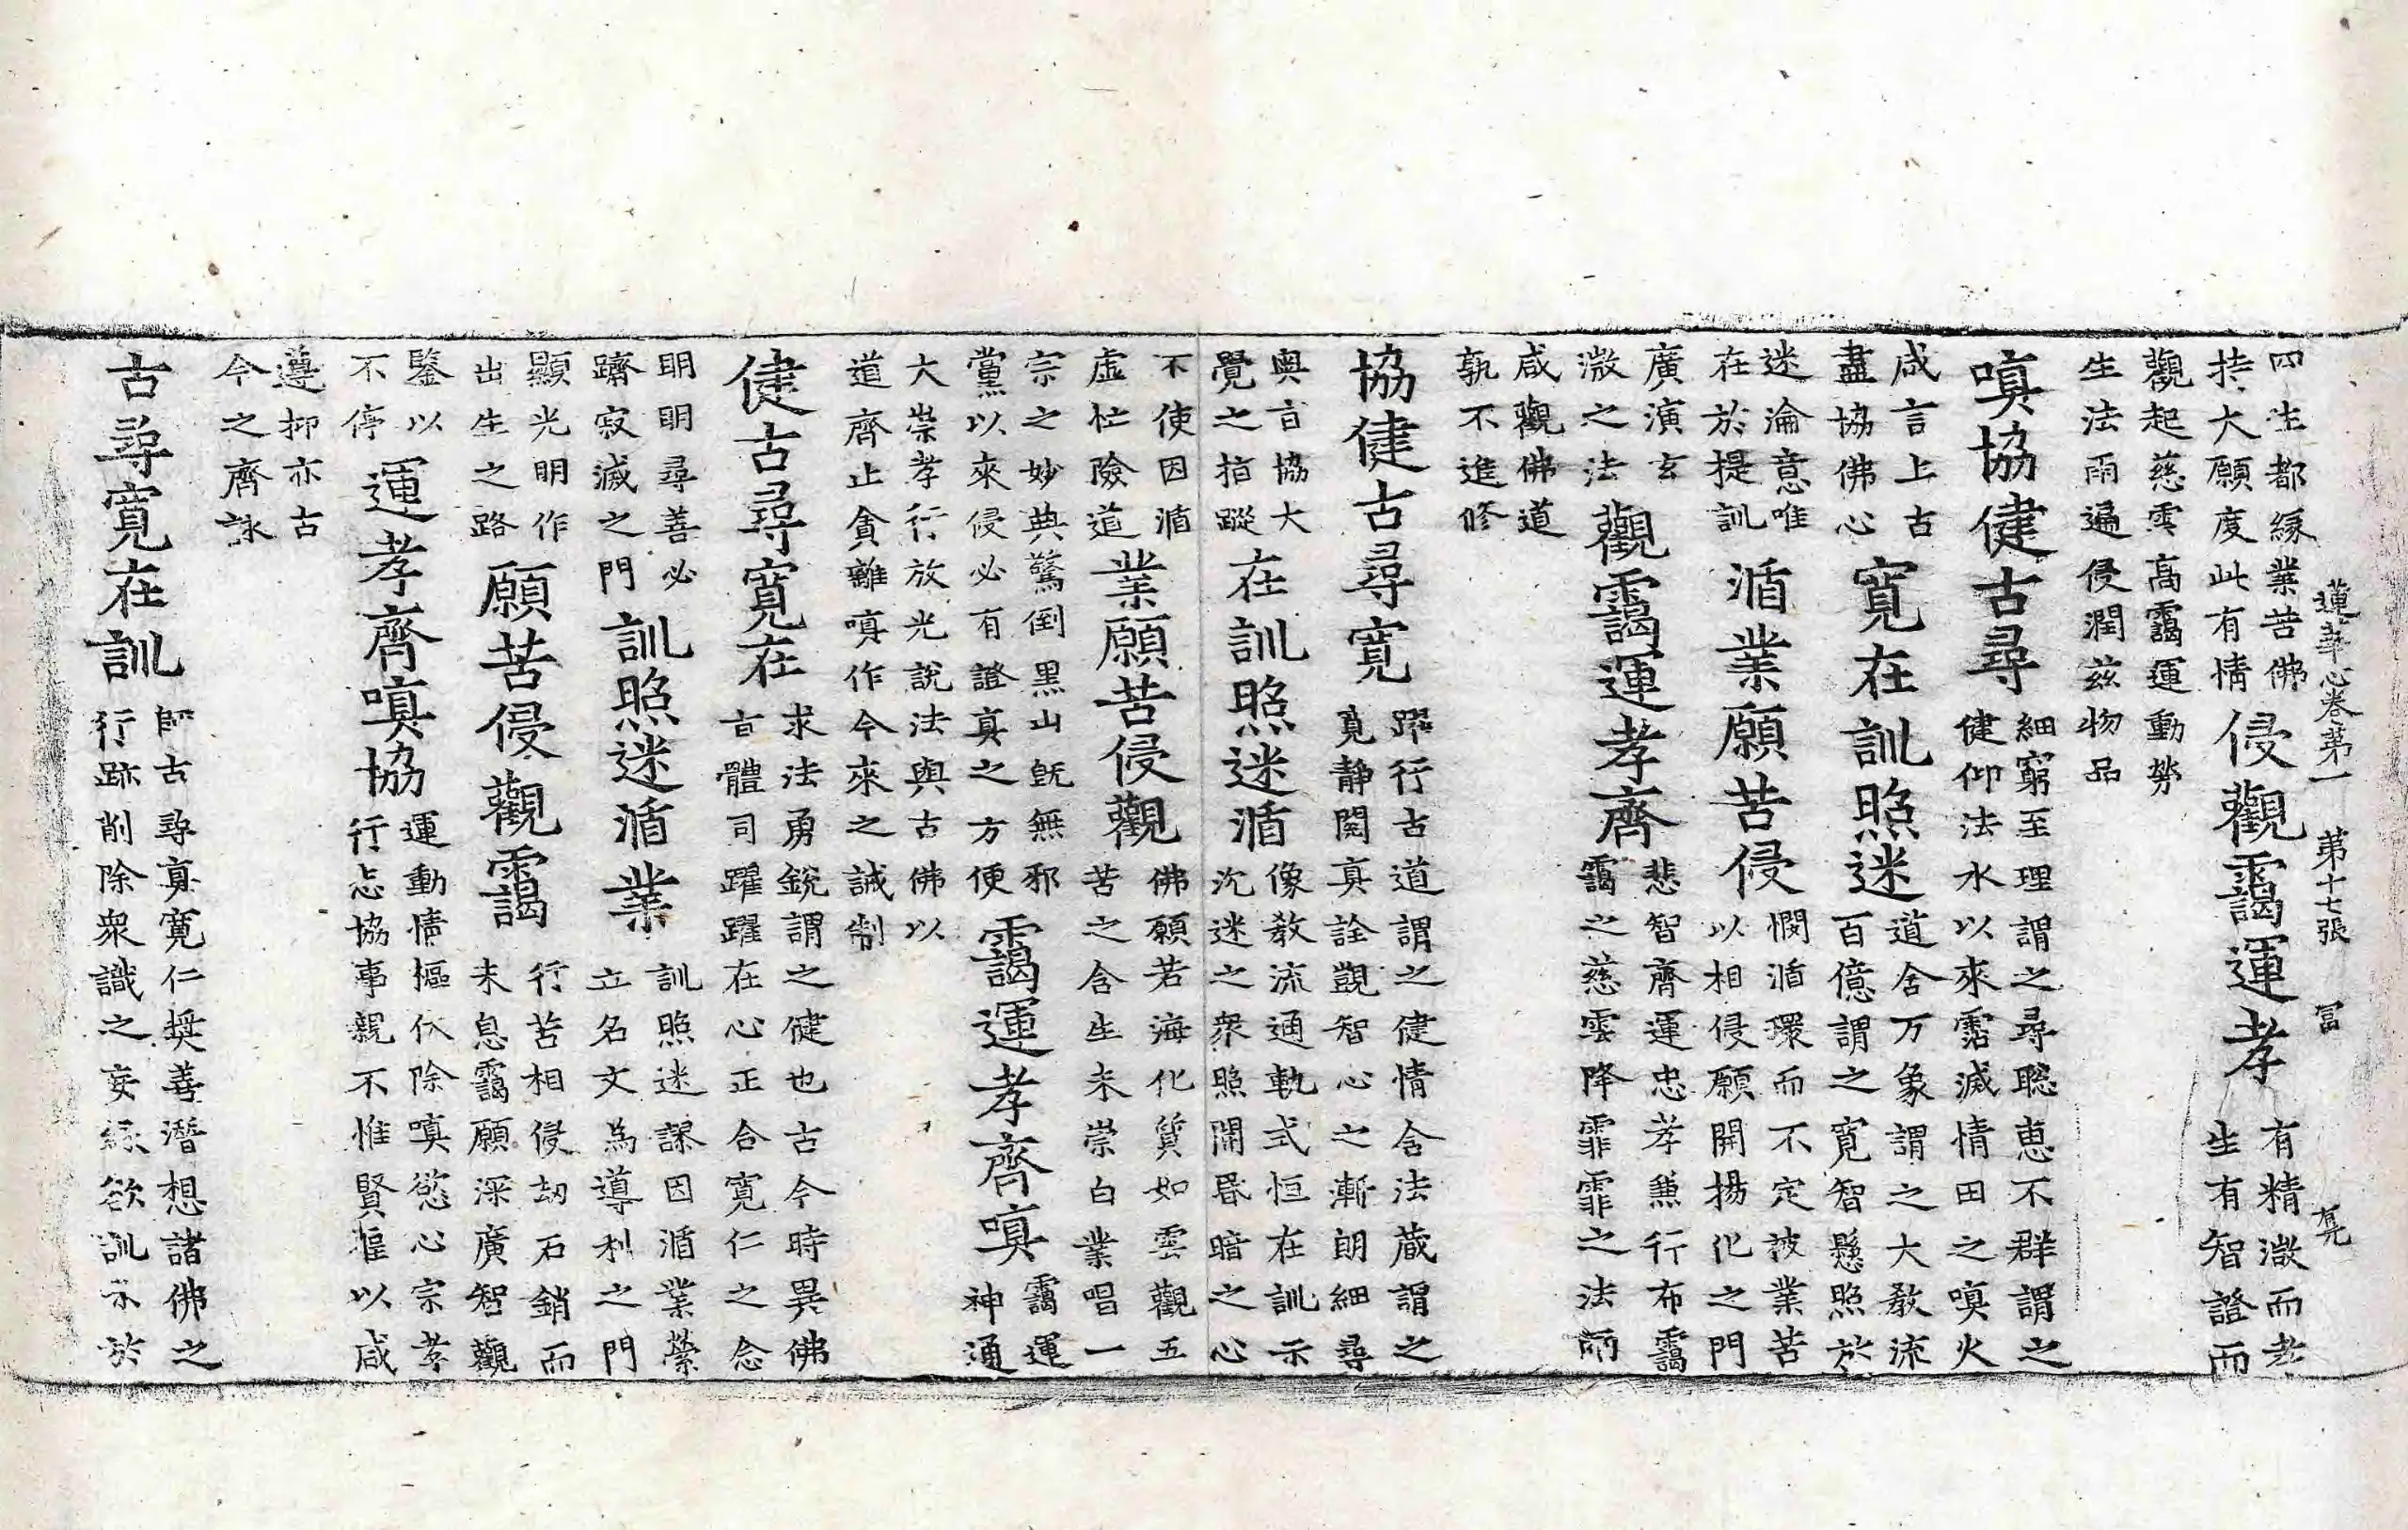 蓮華心卷第一 第十七張 冨
四生都緣業苦佛
持大願度此有情
侵觀靄運孝
有精微而孝
生有智證而
觀起慈雲高靄運動勞
生法雨遍侵潤兹物品
嗔協健古尋
細窮至理謂之尋聡恵不群謂之
健仰法水以來霑滅情田之嗔火
咸言上古
盡協佛心
寛在訓照迷
道舍万象謂之大教流
百億謂之寛智懸照於
迷淪意唯
在於提訓
循業願苦侵
憫循環而不定被業苦
以相侵願開揚化之門
廣演玄
微之法
觀靄運孝齊
悲智齊運忠孝兼行布靄
靄之慈雲降霏霏之法雨
咸觀佛道
孰不進修
協健古尋寛
躡行古道謂之健情含法蔵謂之
覓静閱真詮覬智心之漸朗細尋
奥言協大
覺之指蹤
在訓照迷循
像教流通軌式恒在訓示
沉迷之衆照開昬暗之心
不使因循
虛忙險道
業願苦侵觀
佛願若海化質如雲觀五
苦之含生未崇白業唱一
宗之妙典驚倒黒山既無邪
黨以來侵必有證真之方便
靄運孝齊嗔
靄運
神通
大崇孝行放光說法與古佛以
道齊止貪離嗔作今來之誡制
健古尋寛在
求法勇銳謂之健也古今時異佛
言體司躍躍在心正合寛仁之念
明明尋善必
躋寂滅之門
訓照迷循業
訓照迷謀因循業縈
立名文為導利之門
顯光明作
出生之路
願苦侵觀靄
行苦相侵劫石銷而
未息靄願深廣智觀
鑒以
不停
運孝齊嗔協
運動情樞除嗔慾心宗孝
行協事親不惟賢以咸
遵抑亦古
今之齊詠
古尋寛在訓
師古尋真寛仁奨善潜想諸佛之
行跡削除衆識之妄緣欲訓示於